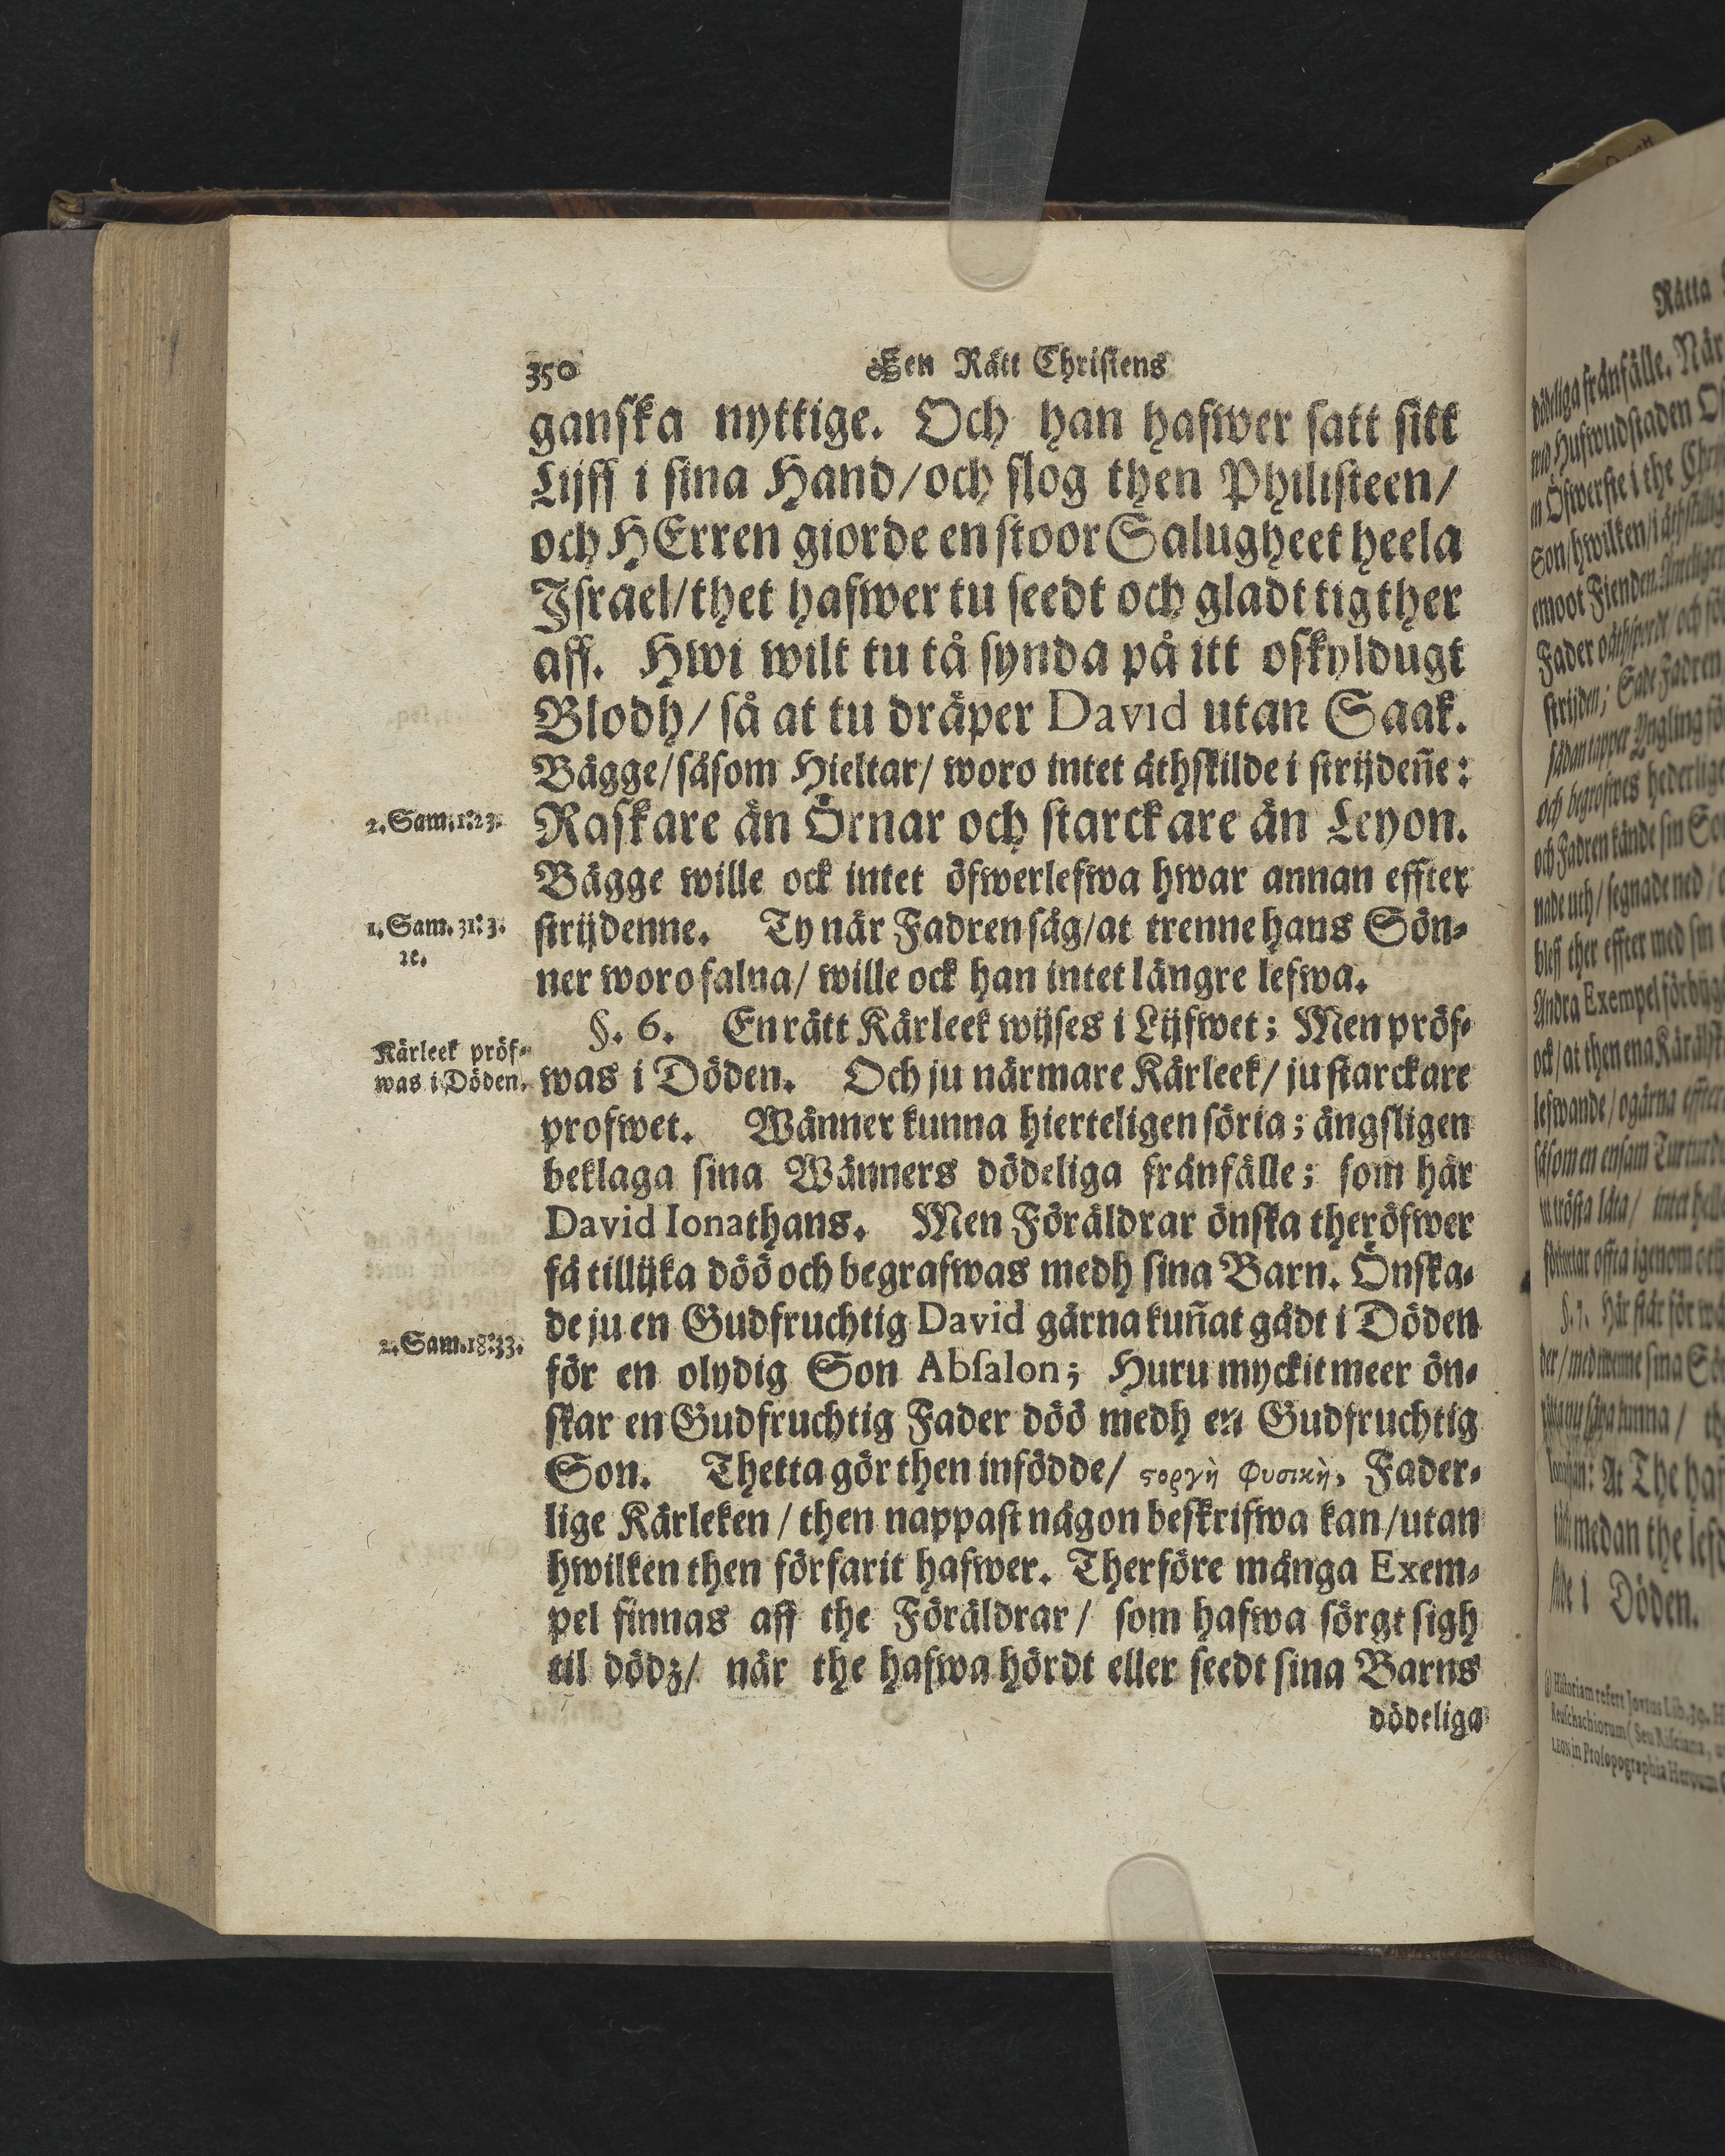 350 Een Rätt Christens
ganska nyttige. Och han hafwer satt sitt
Lijff i sina Hand/och slog then Philisteen/
och HErren giorde en stoor Salugheet heela
Israel/thet hafwer tu seedt och gladt tig ther
aff. Hwi wilt tu tå synda på itt oskyldugt
Blodh/ så at tu dräper David utan Saak.
Bägge/såsom Hieltar/ woro intet åthskilde i strijdeñe:
2. Sam. 1:23.
Raskare än Örnar och starckare än Leyon.
Bägge wille ock intet öfwerlefwa hwar annan effter
1. Sam. 31:3.
ꝛc.
strijdenne. Ty när Fadren såg/at trenne hans Sön-
ner woro falna/ wille ock han intet längre lefwa.
§. 6. En rätt Kärleek wijses i Lijfwet; Men pröf-
Kärleek pröf-
was i Döden.
was i Döden. Och ju närmare Kärleek/ ju starckare
profwet. Wänner kunna hierteligen söria; ängsligen
beklaga sina Wänners dödeliga frånfälle; som här
David Ionathans. Men Föräldrar önska theröfwer
få tillijka döö och begrafwas medh sina Barn. Önska-
2. Sam. 18:33.
de ju en Gudfruchtig David gärna kuñat gådt i Döden
för en olydig Son Absalon; Huru myckit meer ön-
skar en Gudfruchtig Fader döö medh en Gudfruchtig
Son. Thetta gör then infödde/ ϛοργὴ Φυσικὴ, Fader-
lige Kärleken/ then nappast någon beskrifwa kan/utan
hwilken then förfarit hafwer. Therföre många Exem-
pel finnas aff the Föräldrar/ som hafwa sörgt sigh
til dödz/ när the hafwa hördt eller seedt sina Barns
dödeliga
Rätta
dödeliga frånfälle. När
Hufwudstaden
Öfwerste i the
Son/hwilken/i
emoot Fienden
Fader
strijden; Sade Fadren
sådan tapper Yngling
och begrofwes hederlige
och Fadren kände sin
nade uth/ segnade ned/
bleff ther effter med sin
Andra Exempel förbijgå
ock/at then ena
lefwande/ogärna effter
såsom en ensam
trösta låta/ intet
offta igenom
§. 7. Här står för
der/ med
kunna/
At The
medan the
i Döden.
Historiam refert Jovius Lib. 39.
in Prosopographia Heroum